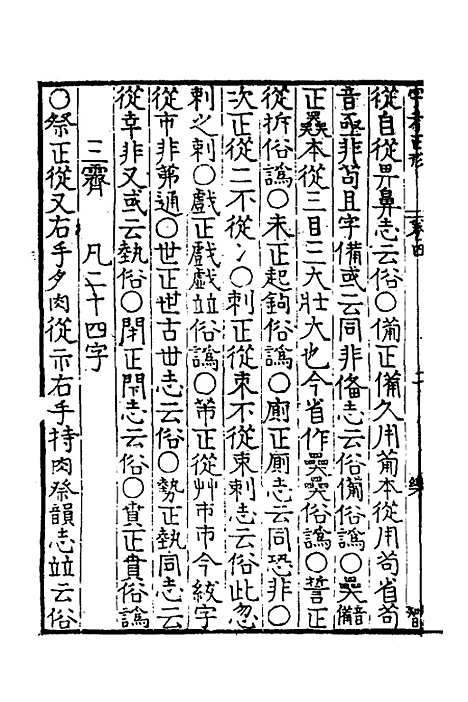 從自從畀鼻志云俗○備正備久用𤰇本從用茍省茍
音亟非苟且字備或云同非俻志云俗俻俗譌○奰音備
正𡚤本從三目三大壯大也今省作奰奰俗譌○誓正
從折俗譌○未正起鉤俗譌○廁正厠志云同恐非○
次正從二不從冫○刺正從朿不從束刺志云俗此忽
剌之剌○戲正戯戱並俗譌○芾正從艸巿巿今紱字
從市非弟通○世正丗古卋志云俗○勢正㔟同志云
從幸非又或云㙯俗○閉正閇志云俗○賁正賁俗譌
三霽 凡二十四字
○祭正從又右手夕肉從示右手持肉祭韻志並云俗